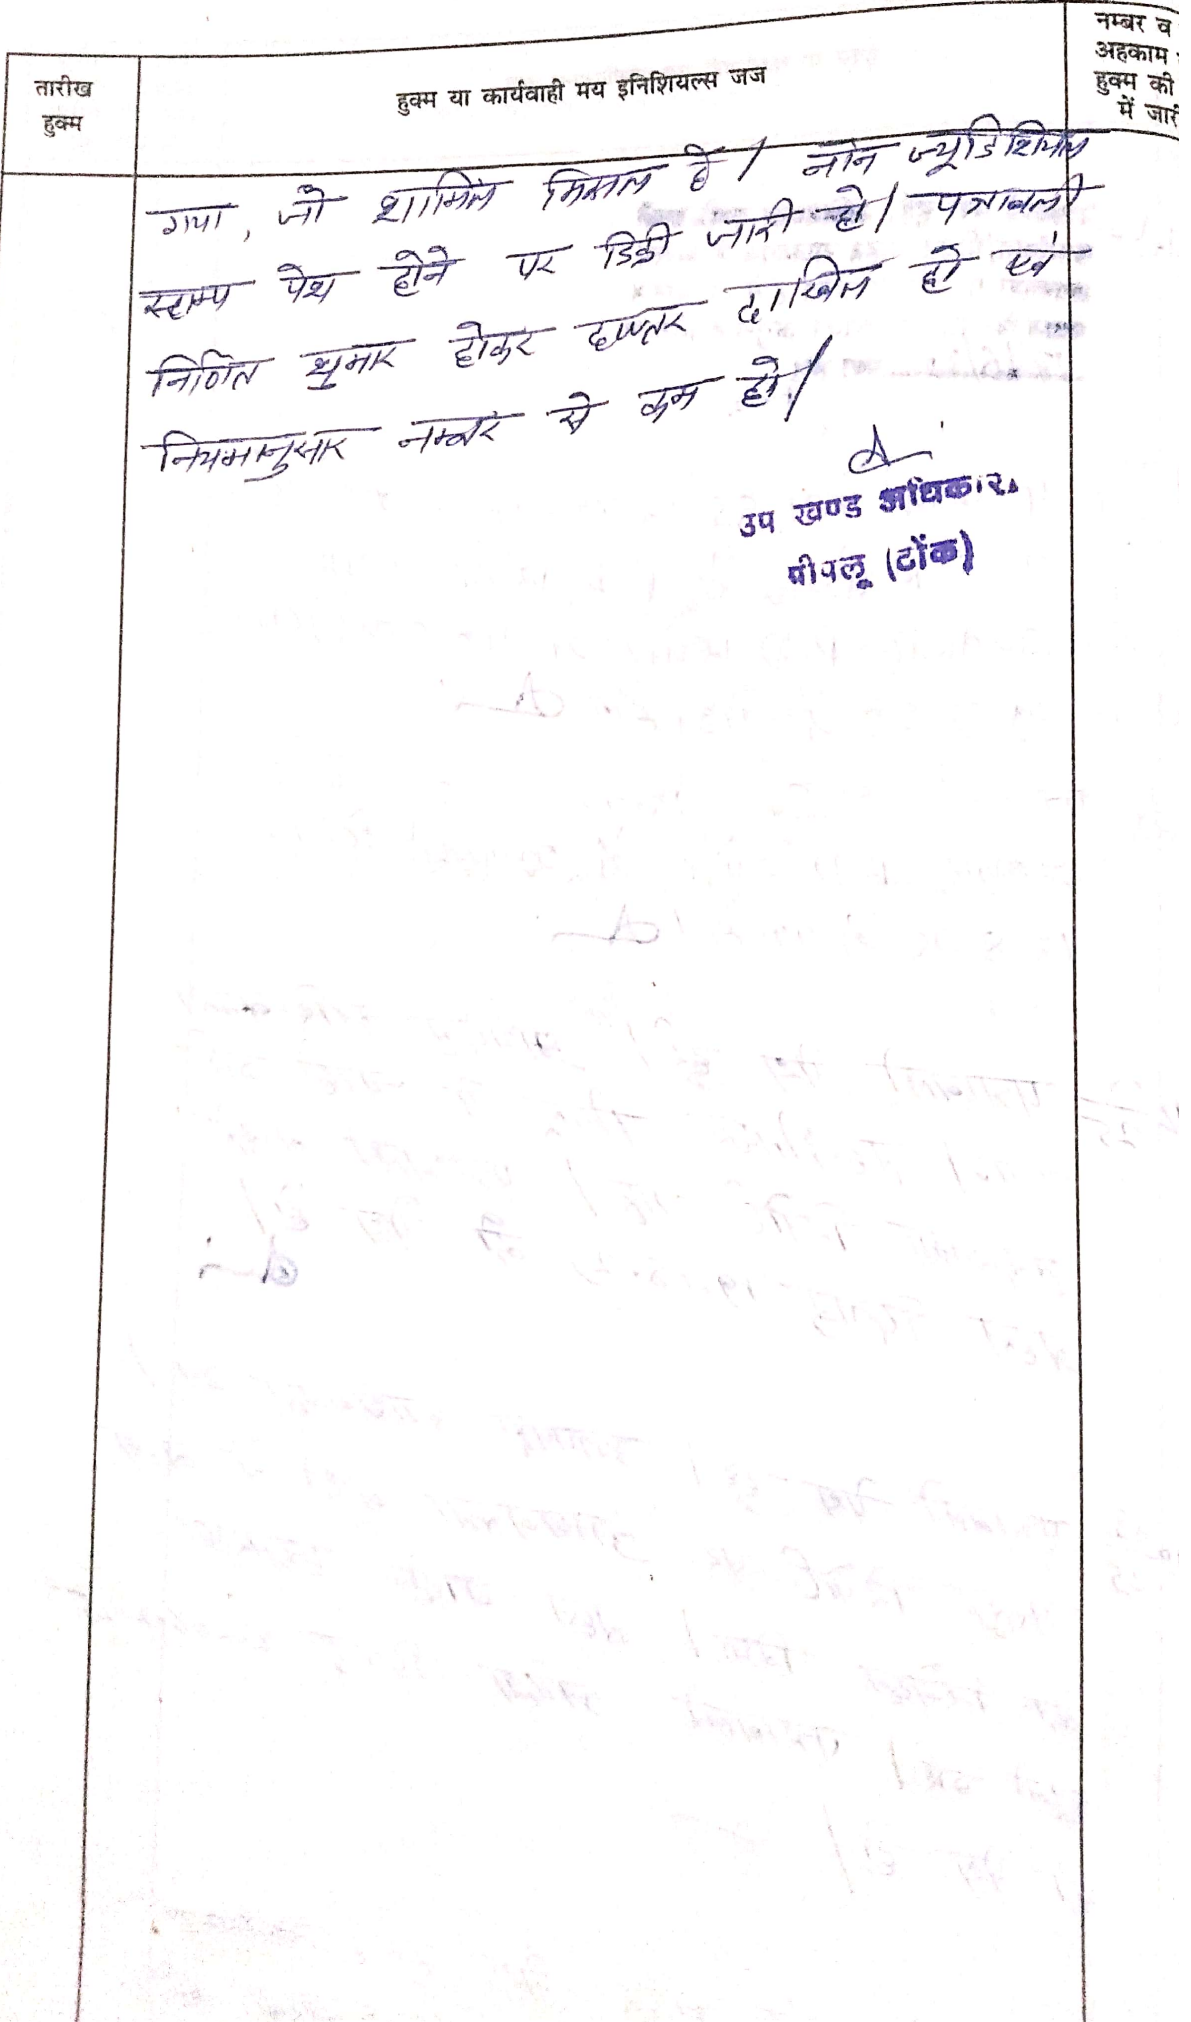 तारीख
हुक्म
हुक्म या कार्यवाही मय इनिशियल्स जज
नम्बर व
अहकाम
हुक्म की
में जारी
गया, जो शामिल मिसल है। नॉन ज्यूडिशियल
स्टाम्प पेश होने पर डिक्री जारी हो। पत्रावली
निर्णित शुमार होकर दफ्तर दाखिल हो एवं
नियमानुसार नम्बर से कम हो।
उप खण्ड अधिकारी
पीपलू (टोंक)